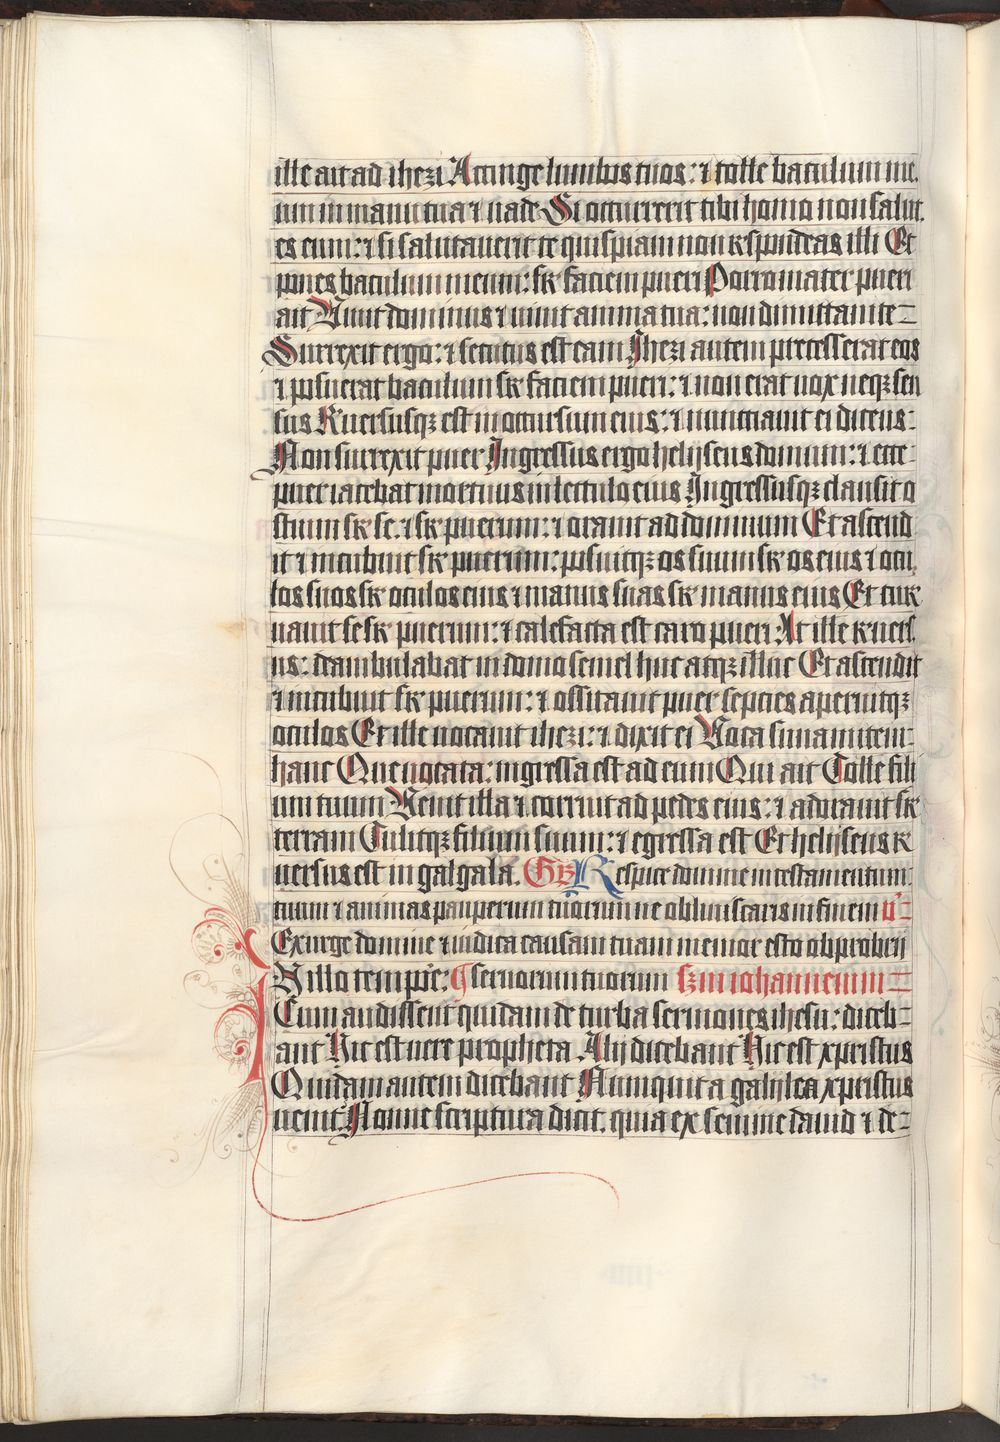 ille ait ad ihezi Accinge lumbos tuos: ⁊ tolle baculum me,
um in manu tua ⁊ uade Si occurrerit tibi homo non salut,
es eum: ⁊ si salutauerit te quispiam non rspondeas illi Et
pones baculum meum: sr faciem pueri Porro mater pueri
ait Uiuit dominus ⁊ uiuit anima tua: non dimittam te
Surrexit ergo: ⁊ secutus est eam Ihezi autem precesserat eos
⁊ posuerat baculum sr faciem pueri: ⁊ non erat uox neqꝫ sen
sus Ruersusqꝫ est in occursum eius: ⁊ nunctiauit ei dicens:
Non surrexit puer Ingressus ergo helijseus domum: ⁊ ecce
puer iacebat mortuus in lectulo eius Ingressusqꝫ clausit o
stium sr se. ⁊ sr puerum: ⁊ orauit ad dominum Et ascend
it ⁊ incubuit sr puerum: posuitqꝫ os suum sr os eius ⁊ ocu,
los suos sr oculos eius ⁊ manus suas sr manus eius Et cur
uauit se sr puerum: ⁊ calefacta est caro pueri At ille ruers,
us: deambulabat in domo semel huc atqꝫ illuc Et ascendit
⁊ incubuit sr puerum: ⁊ ossitauit puer septies aperuitqꝫ
oculos Et ille uocauit ihezi: ⁊ dixit ei Uoca sunamitem
hanc Que uocata: ingressa est ad eum Qui ait Tolle fili
um tuum Uenit illa ⁊ corruit ad pedes eius: ⁊ adorauit sr
terram Tulitqꝫ filium suum: ⁊ egressa est Et helijseus r
uersus est in galgala. Gr Respice domine in testamentum
tuum ⁊ animas pauperum tuorum ne obliuiscaris in finem v̓
Exurge domine ⁊ iudica causam tuam memor esto obprobrij
N illo tempore: ¶ seruorum tuorum sꝫm iohannem m
Cum audissent quidam de turba sermones ihesu: diceb
ant Hic est uere propheta Alij dicebant Hic est xpristus
Quidam autem dicebant Numquit a galijlea xpristus
uenit Nonne scriptura dicit. quia ex semine dauid ⁊ de